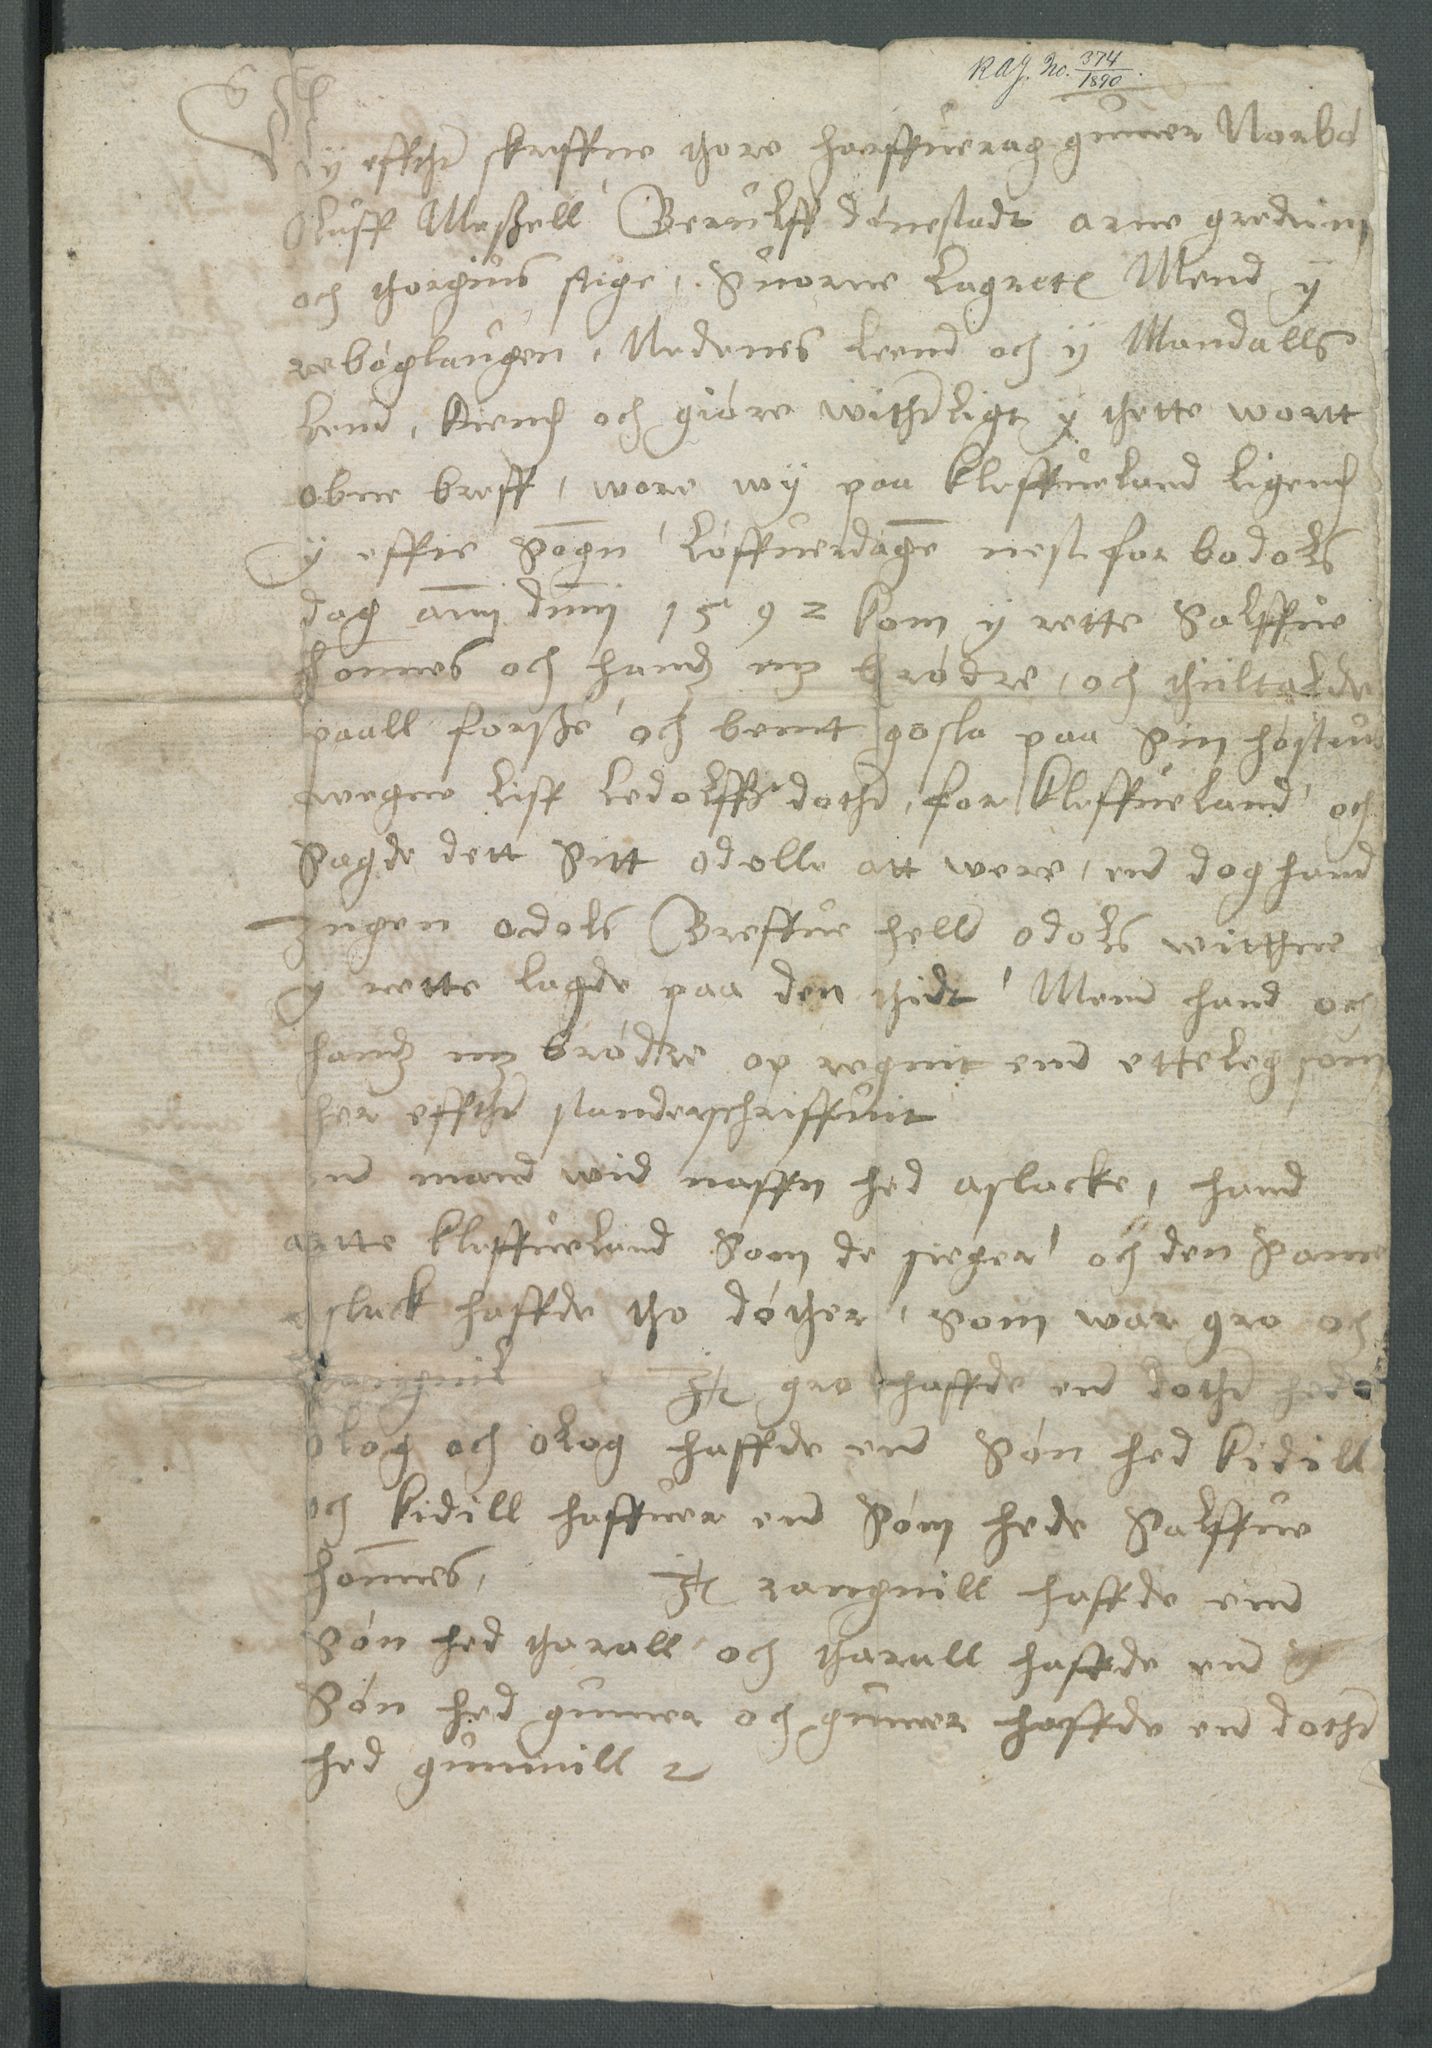 RAJ. No. 374/1890.
Wy effther skreffne thore harffuerag gunner Norbø
Oluff Moszell Berulff dønestadt arne gredum
och thorgius stige, Suorne Lagrets Mend y
robøglaugen, Nedenes Leend och y Mandalls
Lend, Kiend och giøre witherligt y thette wortt
obne breff, wore wy paa Kleffueland ligend
y effie Sogn Løffuerdagen nest for bodols
dag anni dmni 1592 kom y rette Salffue
honnes och hans brødre, och thiltalde
paall forsze och bent gosla paa Sin høstru
wegne Liff Ledolffs dother, for Kleffueland och
Sagde dett Sitt odelle att were, end dog hand
Ingen odols Breffue heller odols wittne
y rette lagde paa den thidt Menn hand och
hans brødre op regnit end etteleg som
her effther standerschriffuit
en mand wid naffn hed aslacke, hand
aatte Kleffueland Som de sieger och den Same
aslack haffde tho døther, Som war gro och
Rangnil Itt gro haffde end dother hede
olog och olog haffde end Søn hed kidill
och kidill haffuer end Søn hede Salffue
honnes, Itt rangnill haffde end
Søn hed tharall och tharall haffde end
Søn hed gunner och gunner haffde end dother
hed gunnill